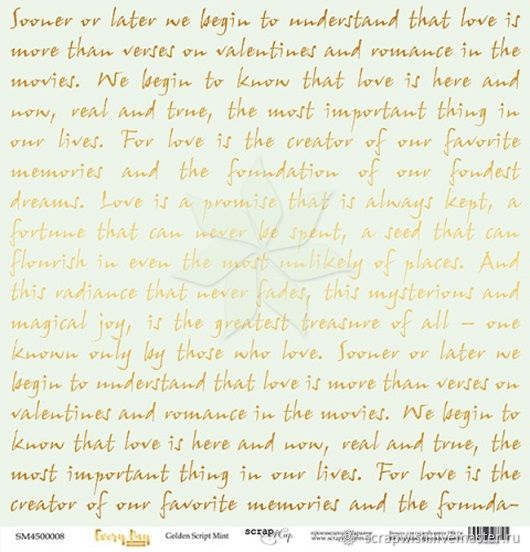 Sooner or later we begin to understand that love is
more than verses on valentines and romance in the
movies. We begin to know that love is here and
now, real and true, the most important thing in
our lives. For love is the creator of our favorite
memories and the foundation of our fondest
dreams. Love is a promise that is always kept, a
fortune that can never be spent, a seed that can
flourish in even the most unlikely of places. And
this radiance that never fades, this mysterious and
magical joy, is the greatest treasure of all – one
known only by those who love. Sooner or later we
begin to understand that love is more than verses on
valentines and romance in the movies. We begin to
know that love is here and now, real and true, the
most important thing in our lives. For love is the
creator of our favorite memories and the founda-
SM4500008 Every Day Golden Script Mint scrap mir